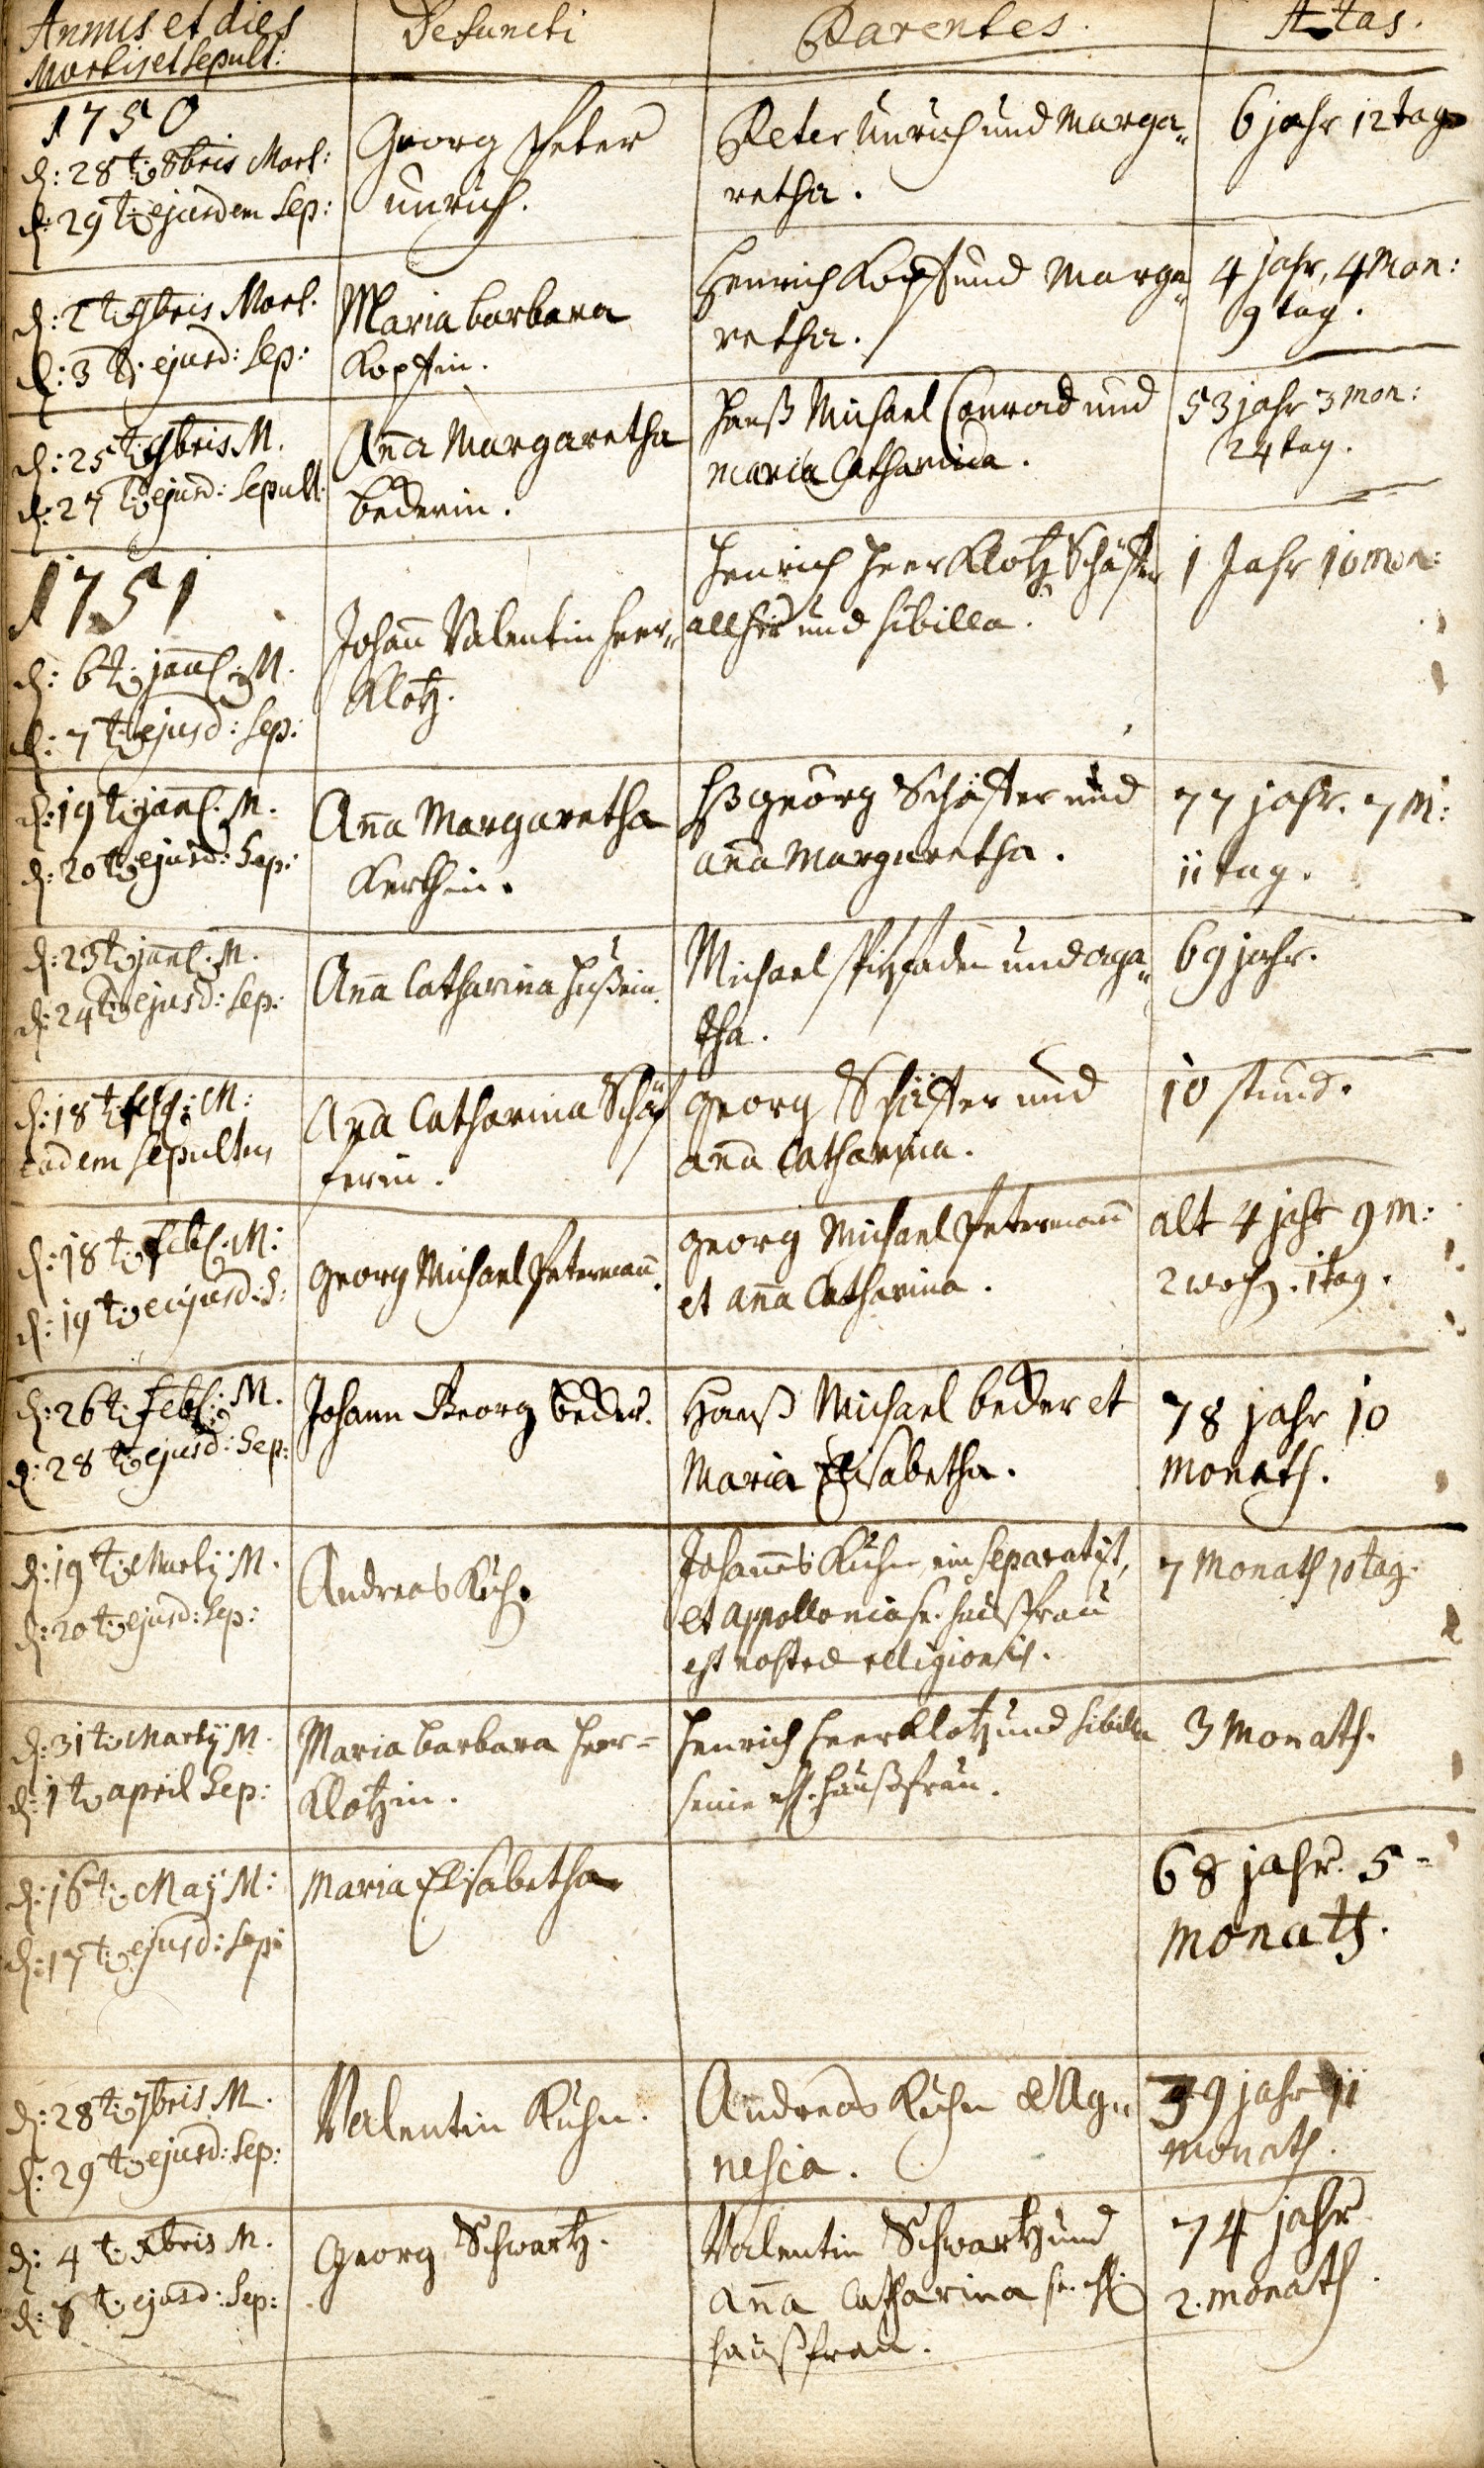 Annus et dies
Mortis et sepult:
Defuncti
Parentes.
Ætas.
1750
d: 28t. 8bris Mort:
d: 29t. ejusdem Sep:
Georg Peter
Unrich.
Peter Unrich und Marga„
retha.
6 jahr 12 tag
d: 2t. 9bris Mort.
d: 3t. ejusd: Sep:
Maria barbara
Kopffin.
Henrich Kopf und Marga„
retha.
4 jahr, 4 Mon:
9 tag.
d: 25t. 9bris M.
d: 27t. ejusd: Sepult:
Anna Margaretha
bederin.
Hanß Michael Conrad und
maria Catharina.
53 jahr 3 mon:
24 tag.
1751
d: 6t. jan. M.
d: 7t. ejusd: Sep:
Johan Valentin Heer„
Klotz.
Henrich Heer Klotz Schäffer
allhie und Sibilla.
1 Jahr 10 mon:
d: 19t. jan. M.
d: 20t. ejusd: Sep:
Anna Margaretha
Kerthin.
Hß georg Schäffer und
ana Margaretha.
77 jahr. 7 M:
11 tag.
d: 23t. jan. M.
d: 24t. ejusd: Sep:
Anna Catharina Hußin.
Michael Spitzfaden und aga„
tha.
69 jahr.
d: 18t. M:
eadem Sepultus
Ana Catharina Schäf
ferin.
georg Schäffer und
ana Catharina.
10 stund.
d: 18t. feb. M:
d: 19t. ejusd: S:
georg Michael Peterman.
georg Michael Peterman
et anna Catharina.
alt 4 jahr 9 M:
2 woch. 1 tag.
d: 26t. feb: M.
d: 28t. ejusd: Sep:
Johann Georg beder.
Hanß Michael beder et
Maria Elisabetha.
78 jahr 10
monath.
d: 19t. Martij M.
d: 20t. ejusd: Sep:
Andreas Kuh.
Johanes Kuhn ein Separatist,
et appollonia se. haußfrau
est nostrae religionis.
7 Monath 10 tag.
d: 31t. Martij M.
d: 1t. april Sep:
Maria barbara Heer=
Klotzin.
Henrich Heer Klotz und Sibilla
seine ehl. haußfrau.
3 Monath.
d: 16t. Maij M:
d: 17t. ejusd: Sep:
Maria Elisabetha
68 jahr. 5=
monath.
d: 28t. 7bris M.
d: 29t. ejusd: Sep:
Valentin Kuhn.
Andreas Kuhn & Ag„
nesia.
39 jahr 11
monath.
d: 4t. xbris M.
d: 6t. ejusd: Sep:
Georg Schwartz.
Valentin Schwartz und
anna Catharina se. ehl
haußfrau.
74 jahr
2. monath.